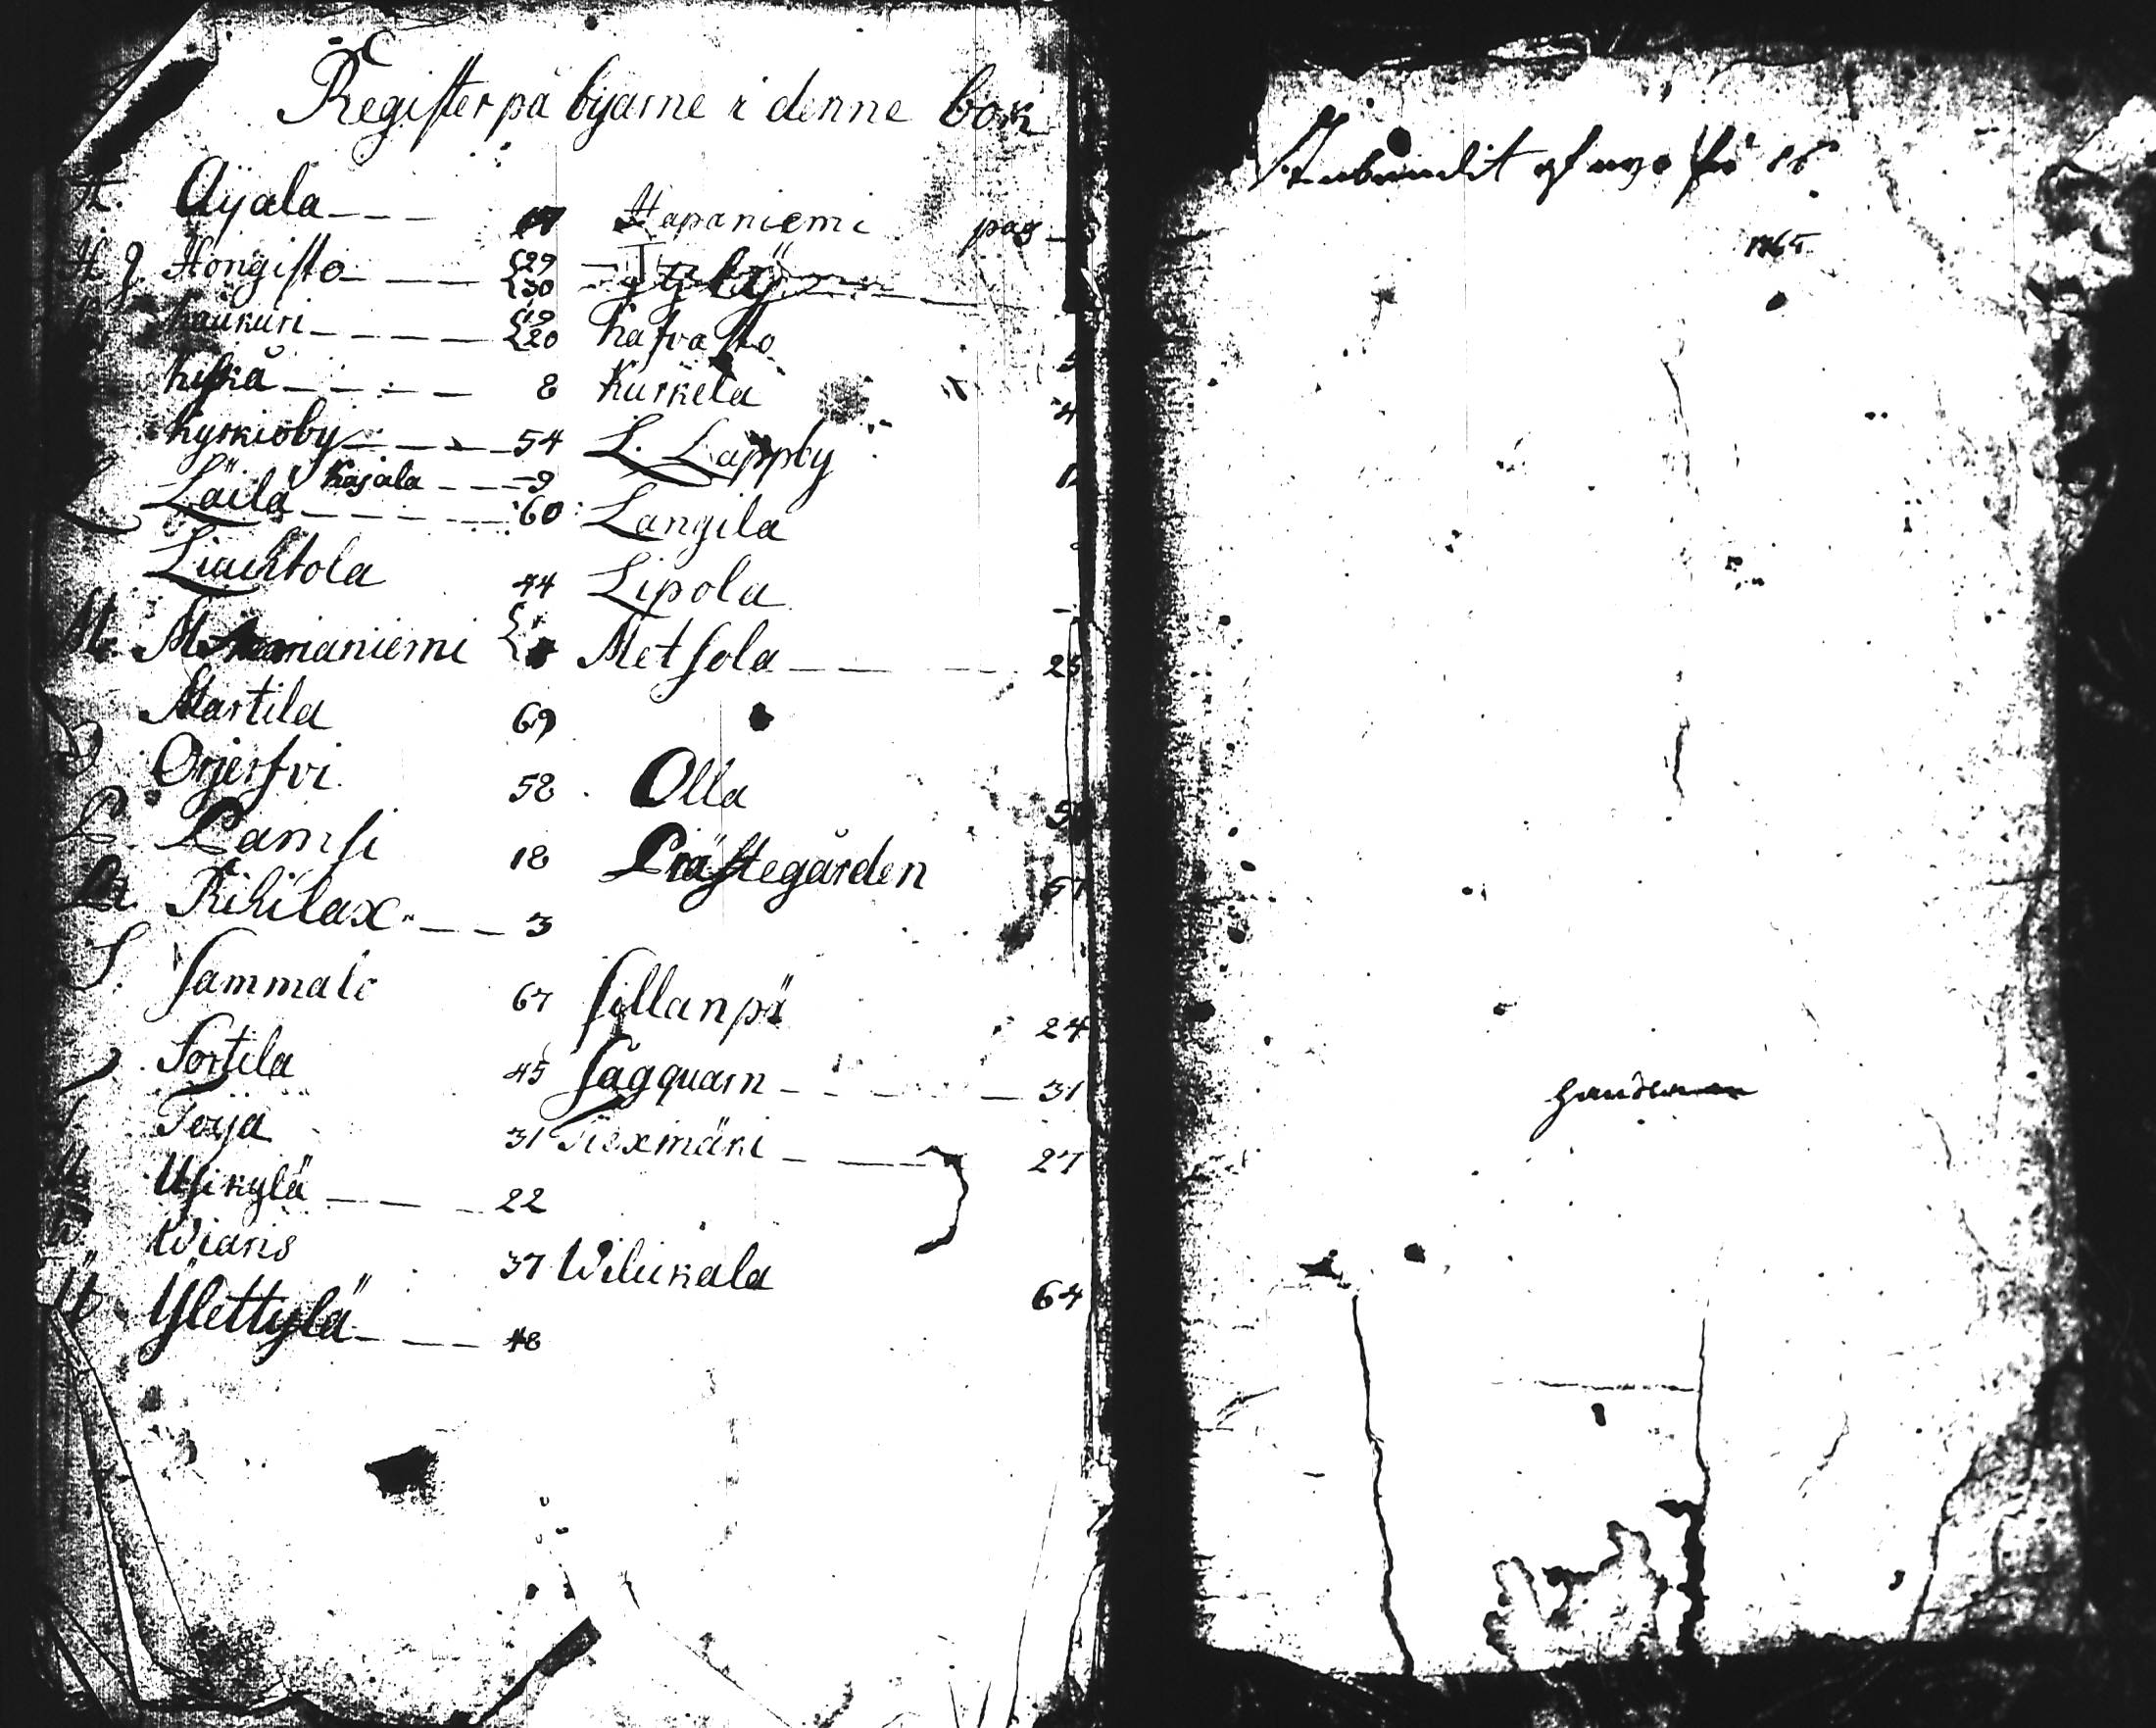 Register på byarne i denne bok
A. Ayala 17 Hapaniemi pag
H. J Hongisto {29 {30
Kaukuri {19 {20 Kafvasto
Kiskå 8 Kurkela 4
Kyrkioby 54 L. Lappby
Kajala 9
Läilä 60 Langila
Liuchtola 44 Lipola
M. Marianiemi { Metsola 25
Martila 69
O Orjerfvi 58 Olla
P. Pamsi 18 Prästegården 57
R. Rikilax 3
S. Sammalo 67 Sillanpä 24
Sortila 45 Sågquarn 31
T Terja 31 Tiexmäki 27
U Usikylä 22
W Wiaris 37 Wilukala 64
Y Ylettylä 48
Inbundit af nyo
1765